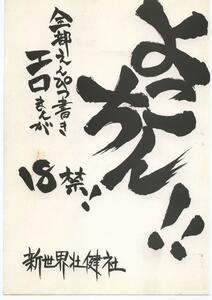 よっこ
ちん!!
全部えんぴつ書き
エロまんが
18禁!!
新世界壮健社